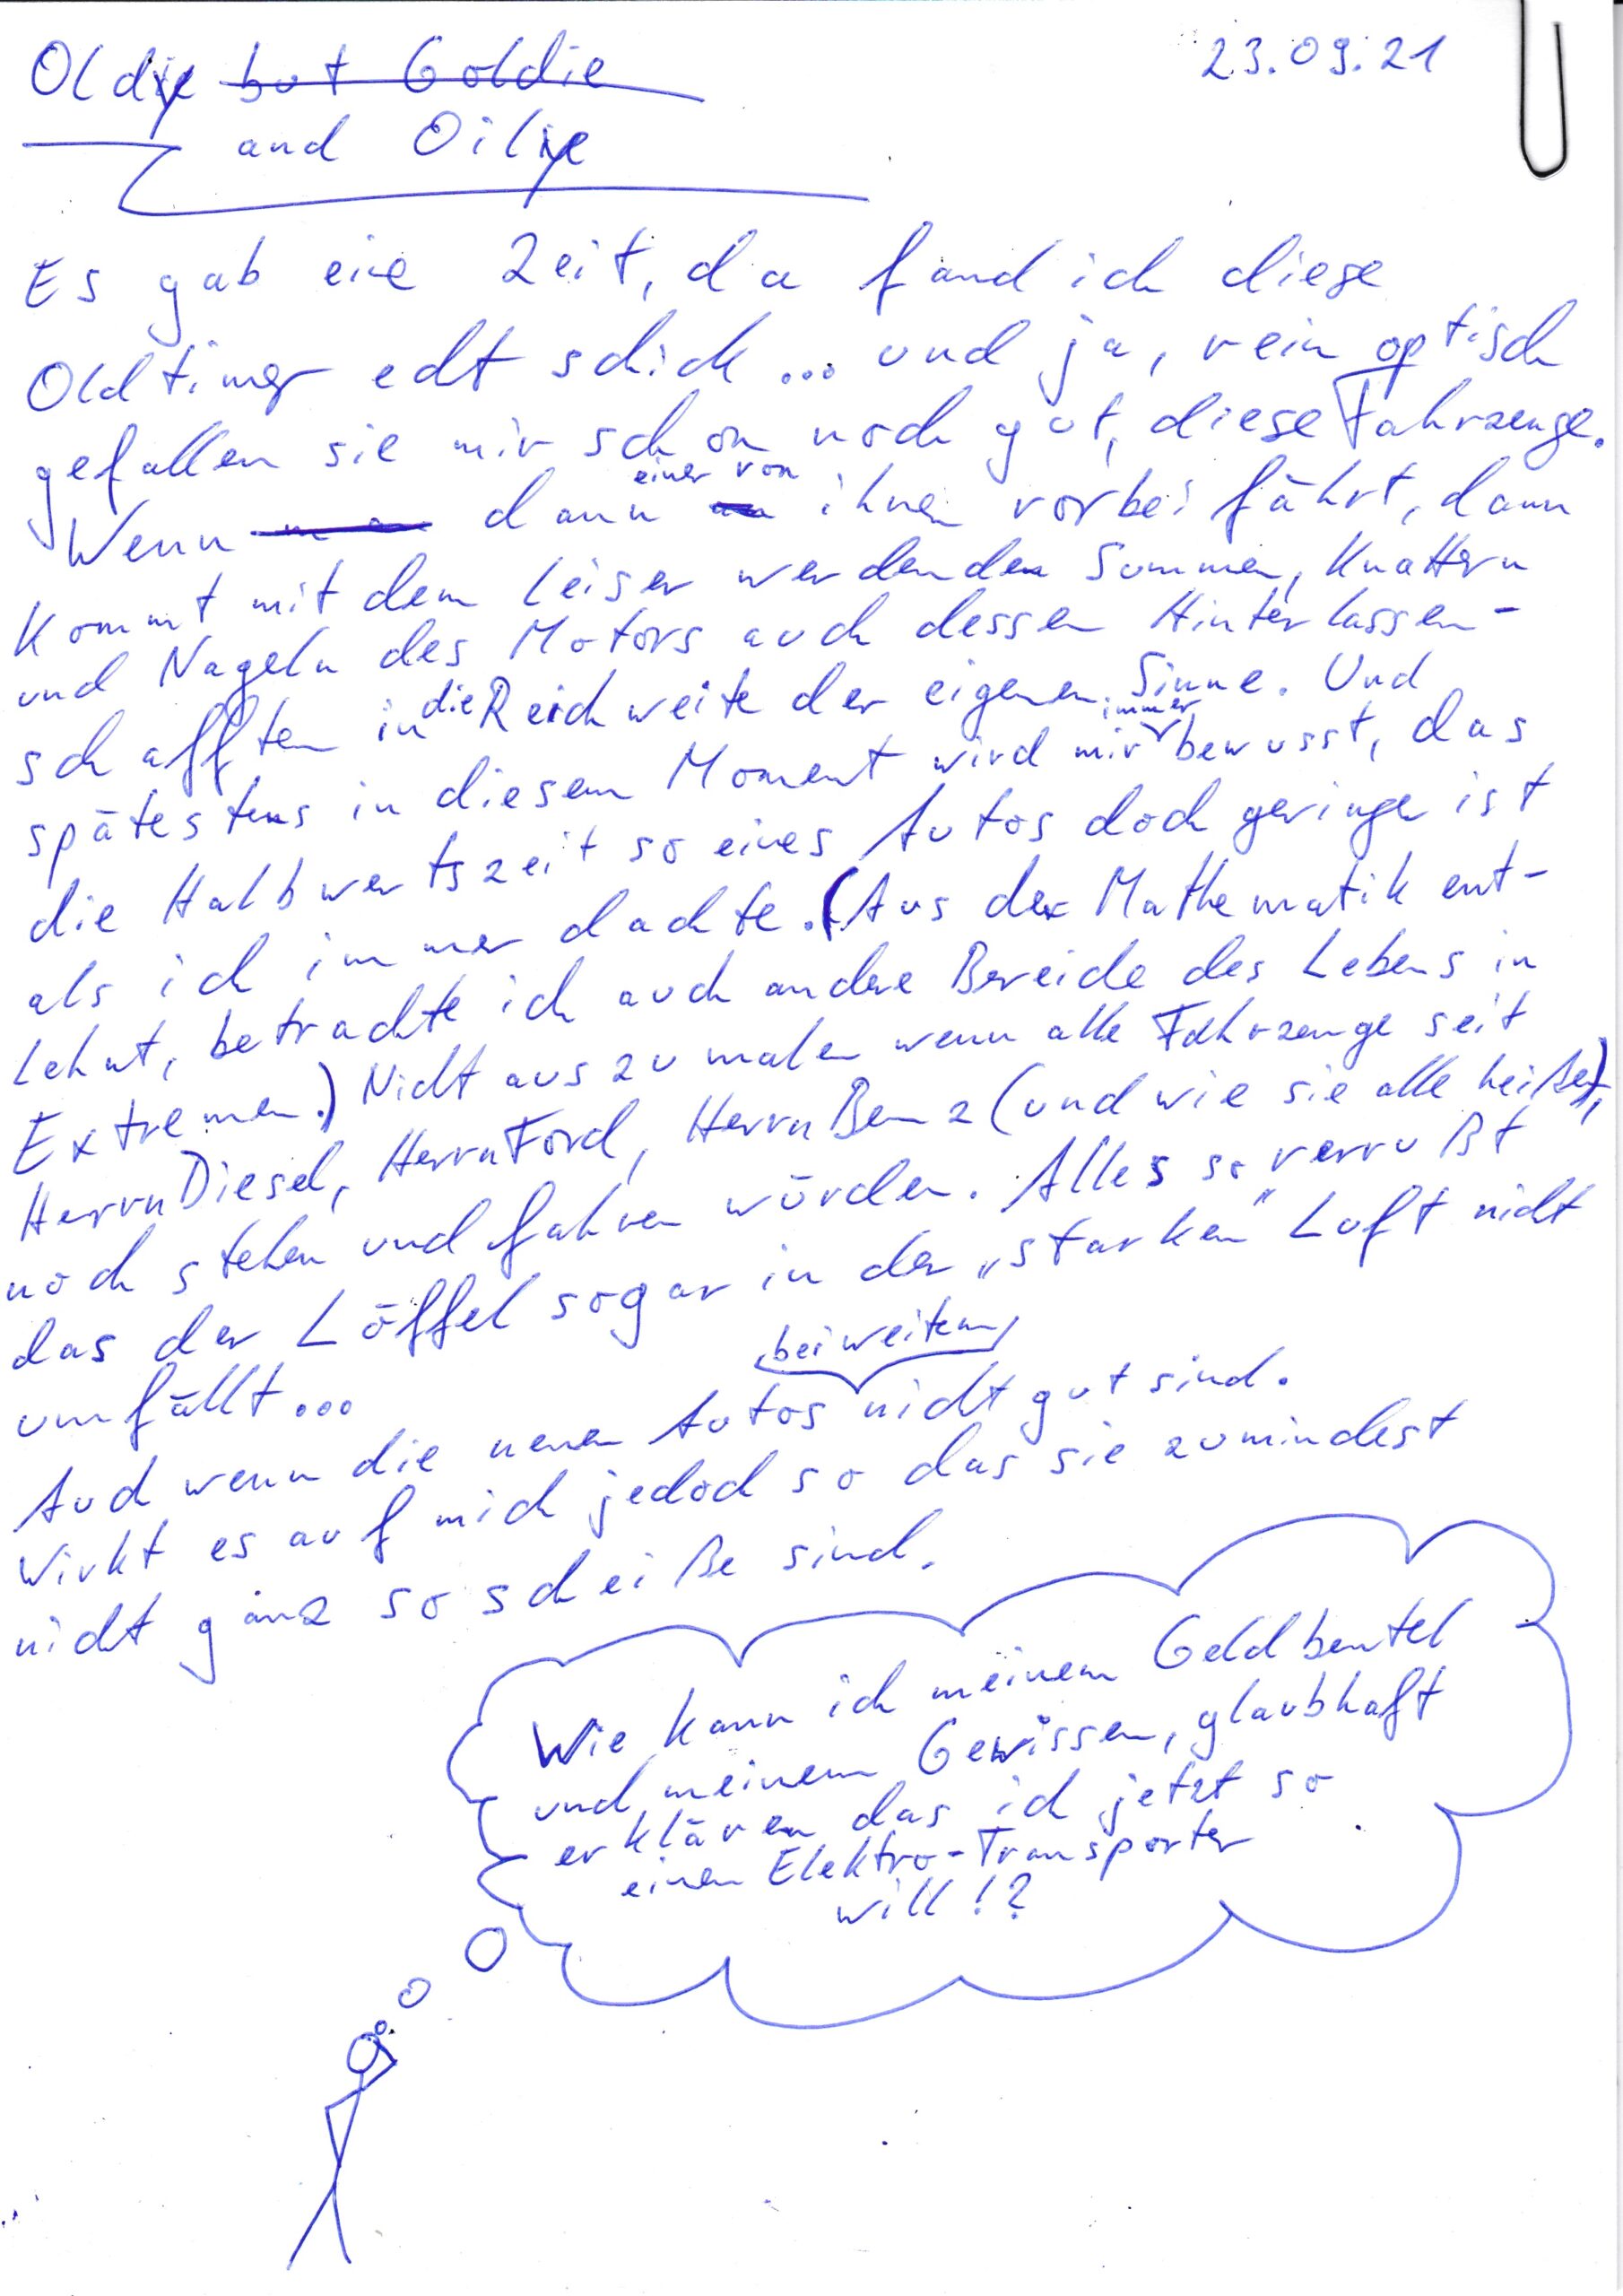 Oldy but Goldie
23.09.21
and Oily
Es gab eine Zeit, da fand ich diese
Oldtimer echt schick ... und ja, rein optisch
gefallen sie mir schon noch gut, diese Fahrzeuge.
Wenn dann einer von ihnen vorbei fährt, dann
kommt mit dem leiser werdenden Summen, Knattern
und Nageln des Motors auch dessen Hinterlassen-
schafften in die Reichweite der eigenen Sinne. Und
spätestens in diesem Moment wird mir immer bewusst, das
die Halbwertszeit so eines Autos doch geringer ist
als ich immer dachte. (Aus der Mathematik ent-
lehnt, betrachte ich auch andere Bereiche des Lebens in
Extremen.) Nicht auszumalen wenn alle Fahrzeuge seit
Herrn Diesel, Herrn Ford, Herrn Benz (und wie sie alle heißen),
noch stehen und fahren würden. Alles so verrußt
das der Löffel sogar in der „starken" Luft nicht
umfällt...
Auch wenn die neuen Autos bei weitem nicht gut sind.
Wirkt es auf mich jedoch so das sie zumindest
nicht ganz so scheiße sind.
Wie kann ich meinem Geldbeutel
und meinem Gewissen, glaubhaft
erklären das ich jetzt so
einen Elektro-Transporter
will!?